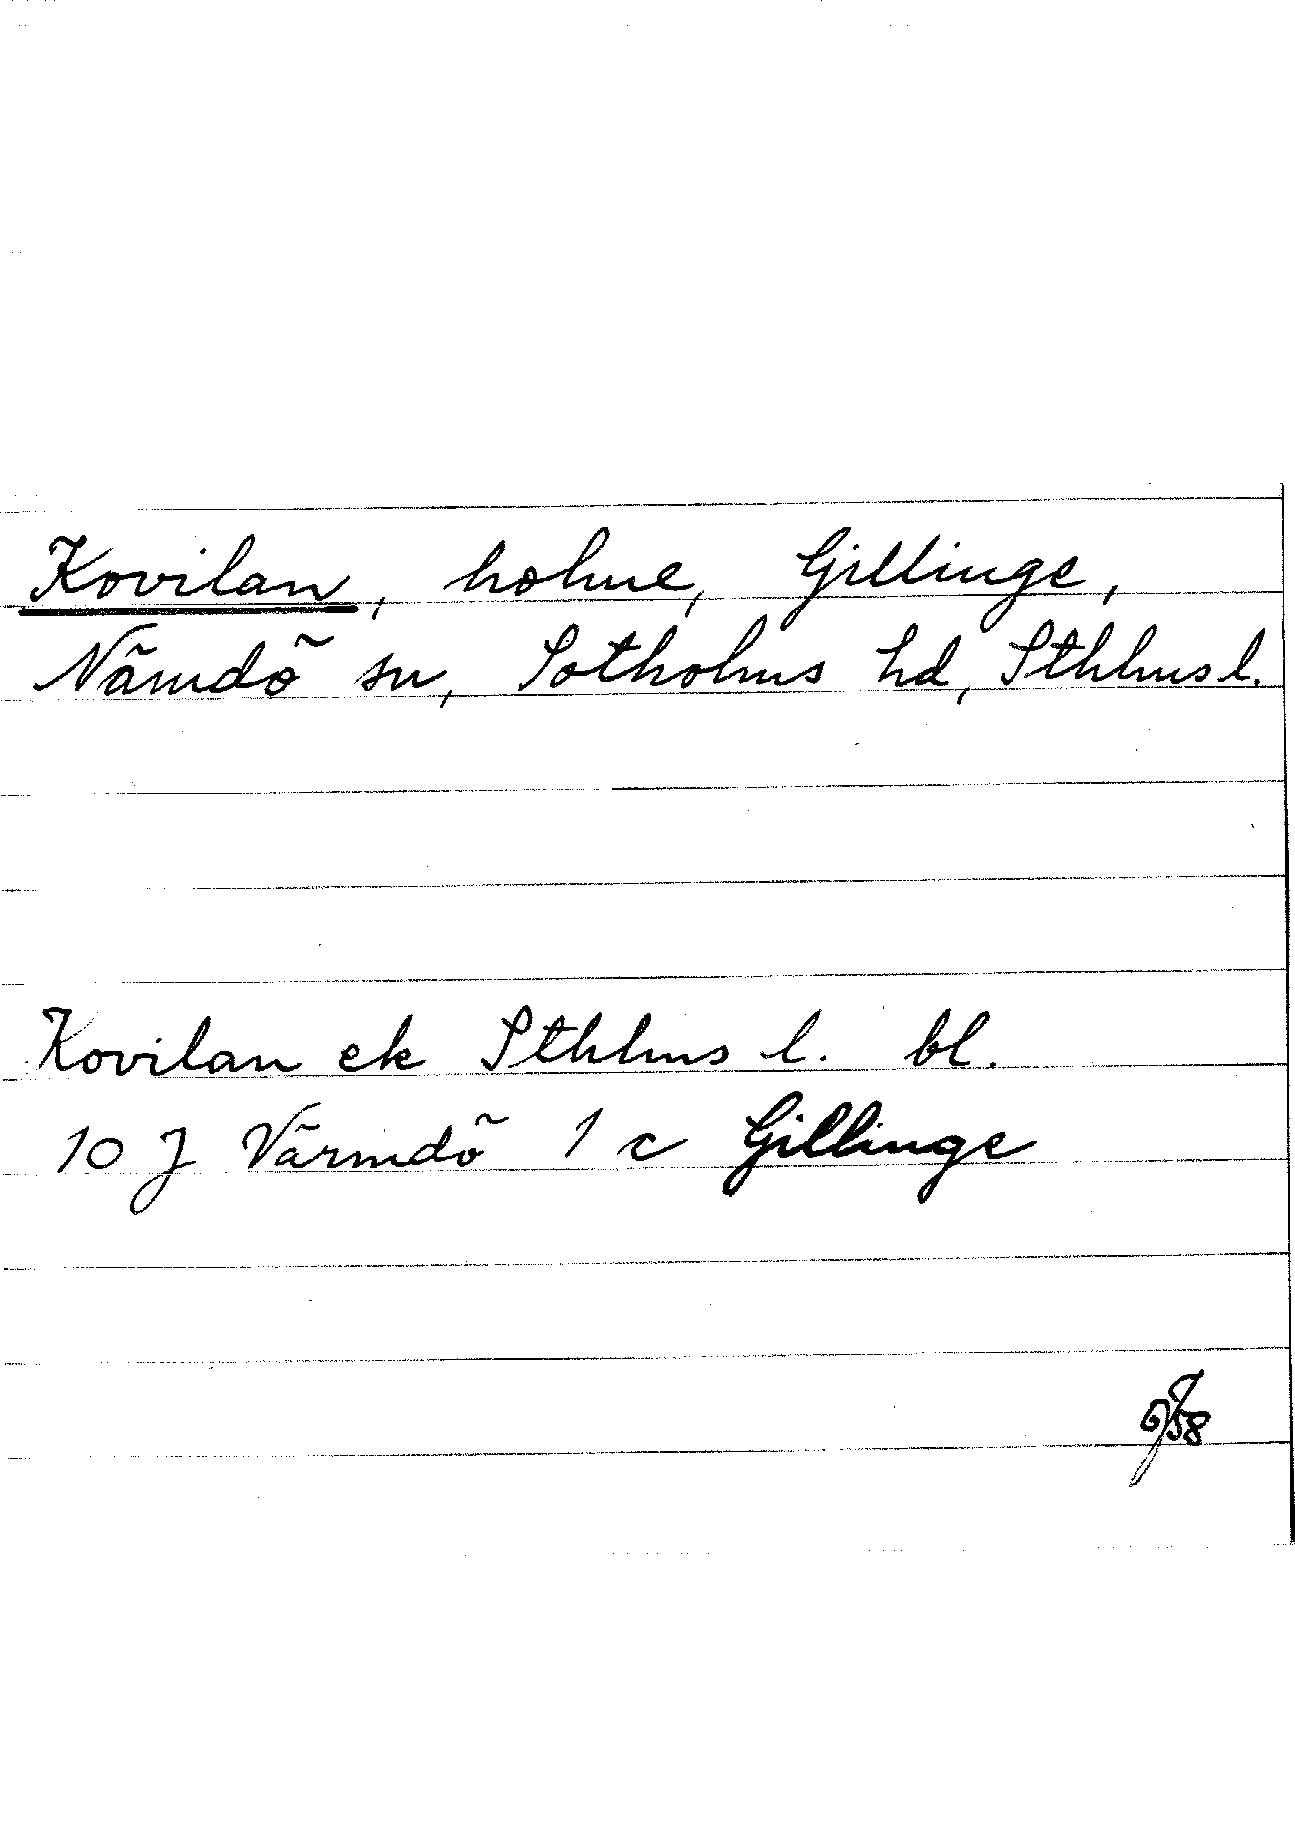 Kovilan, holme, Gillinge,
Nämdö sn, Sotholms hd, Sthlms l.
Kovilan ek Sthlms l. bl.
10 J Värmdö 1 c Gillinge